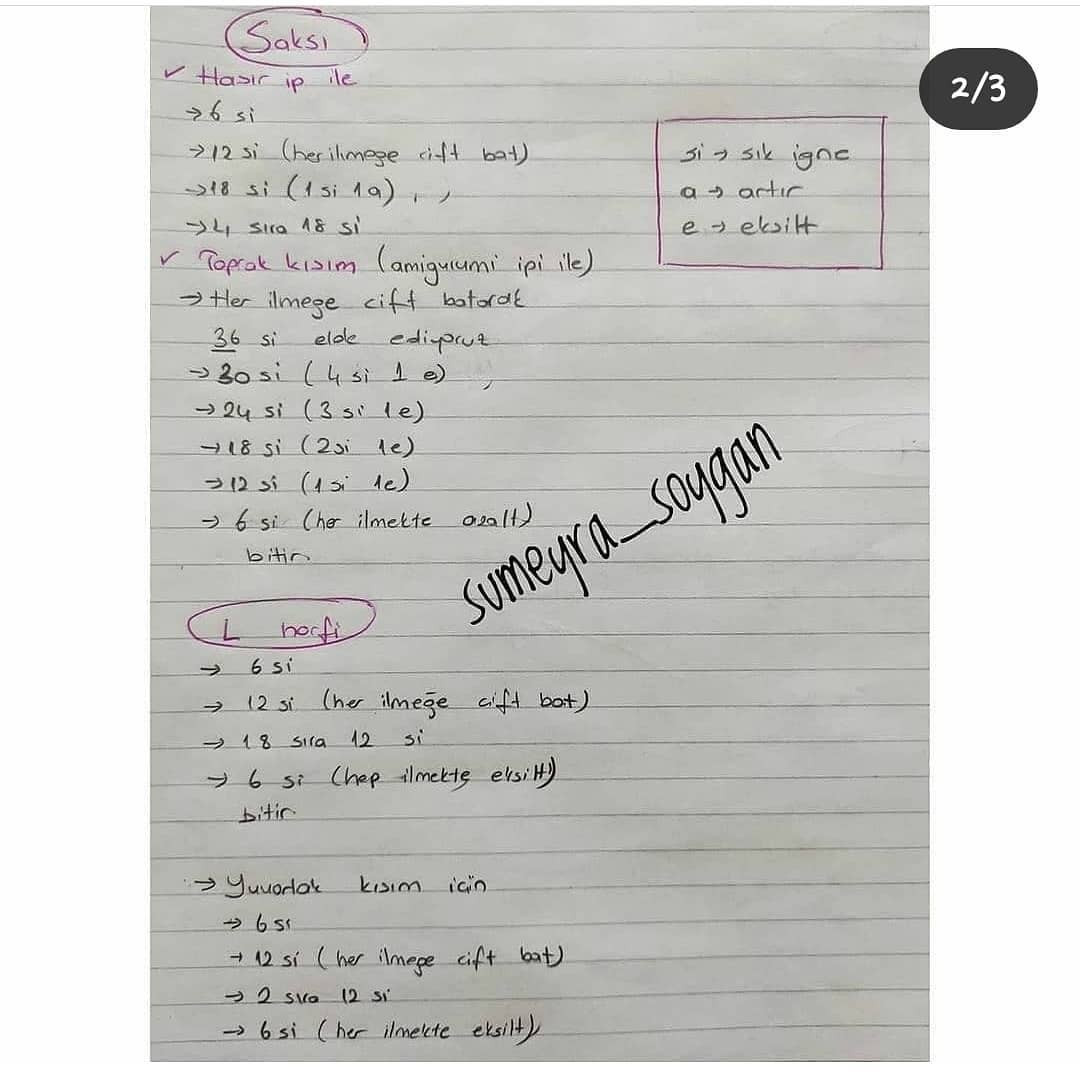 Saksı
✓ Hasır ip ile
→ 6 si
→ 12 si (her ilmege cift bat)
→ 18 si (1 si 1a) , ,
→ 4 sıra 18 si
✓ Toprak kısım (amigurumi ipi ile)
→ Her ilmege cift batarak
36 si elde ediyoruz
→ 30 si (4 si 1 e)
→ 24 si (3 si 1e)
→ 18 si (2si 1e)
→ 12 si (1 si 1e)
→ 6 si (her ilmekte azalt)
bitir
L harfi
→ 6 si
→ 12 si (her ilmeğe cift bat)
→ 18 sıra 12 si
→ 6 si (hep ilmekte eksilt)
bitir
→ Yuvarlak kısım için
→ 6 si
→ 12 si (her ilmege cift bat)
→ 2 sıra 12 si
→ 6 si (her ilmekte eksilt)
si → sık igne
a → artır
e → eksilt
sumeyra_soygan
2/3